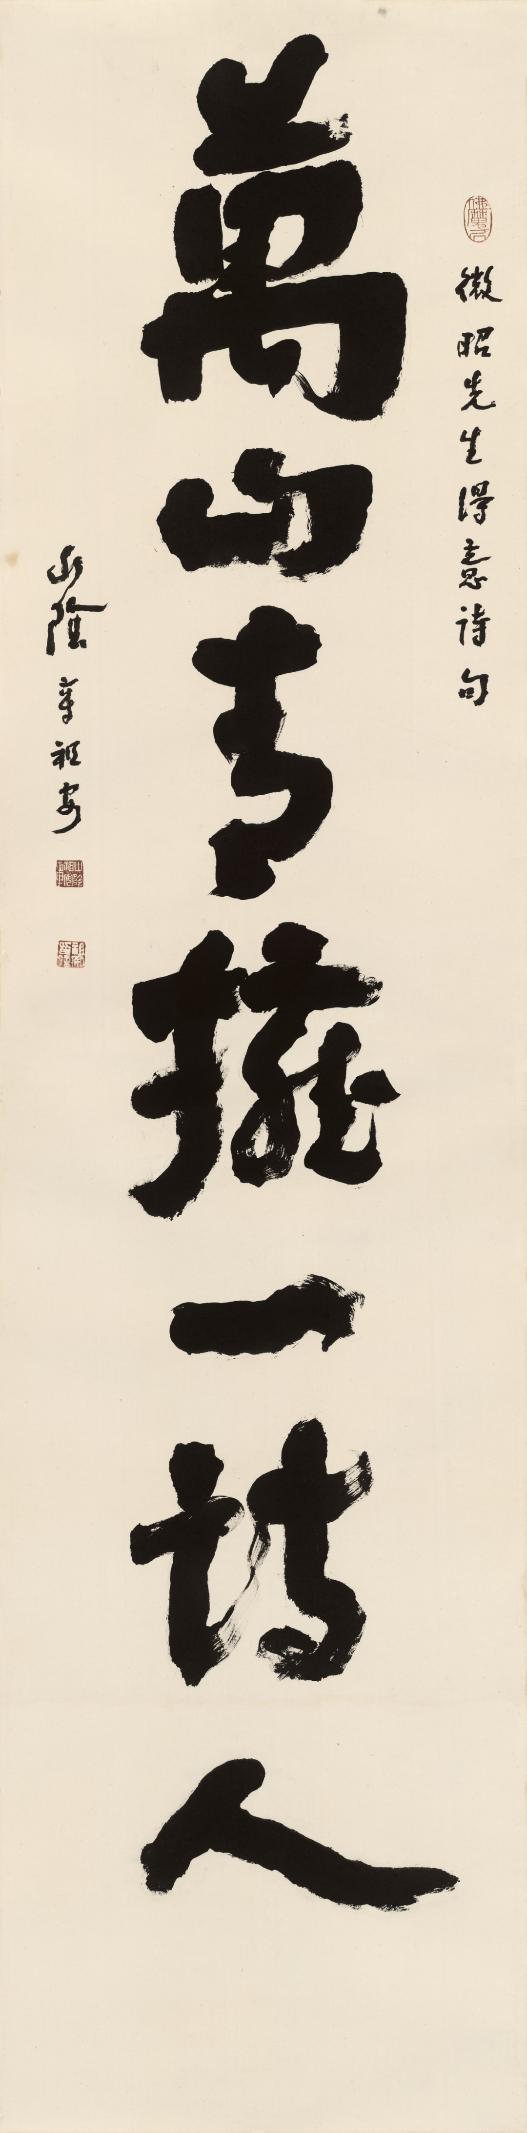 微昭先生得意詩句
萬山青擁一詩人
山陰章祖安